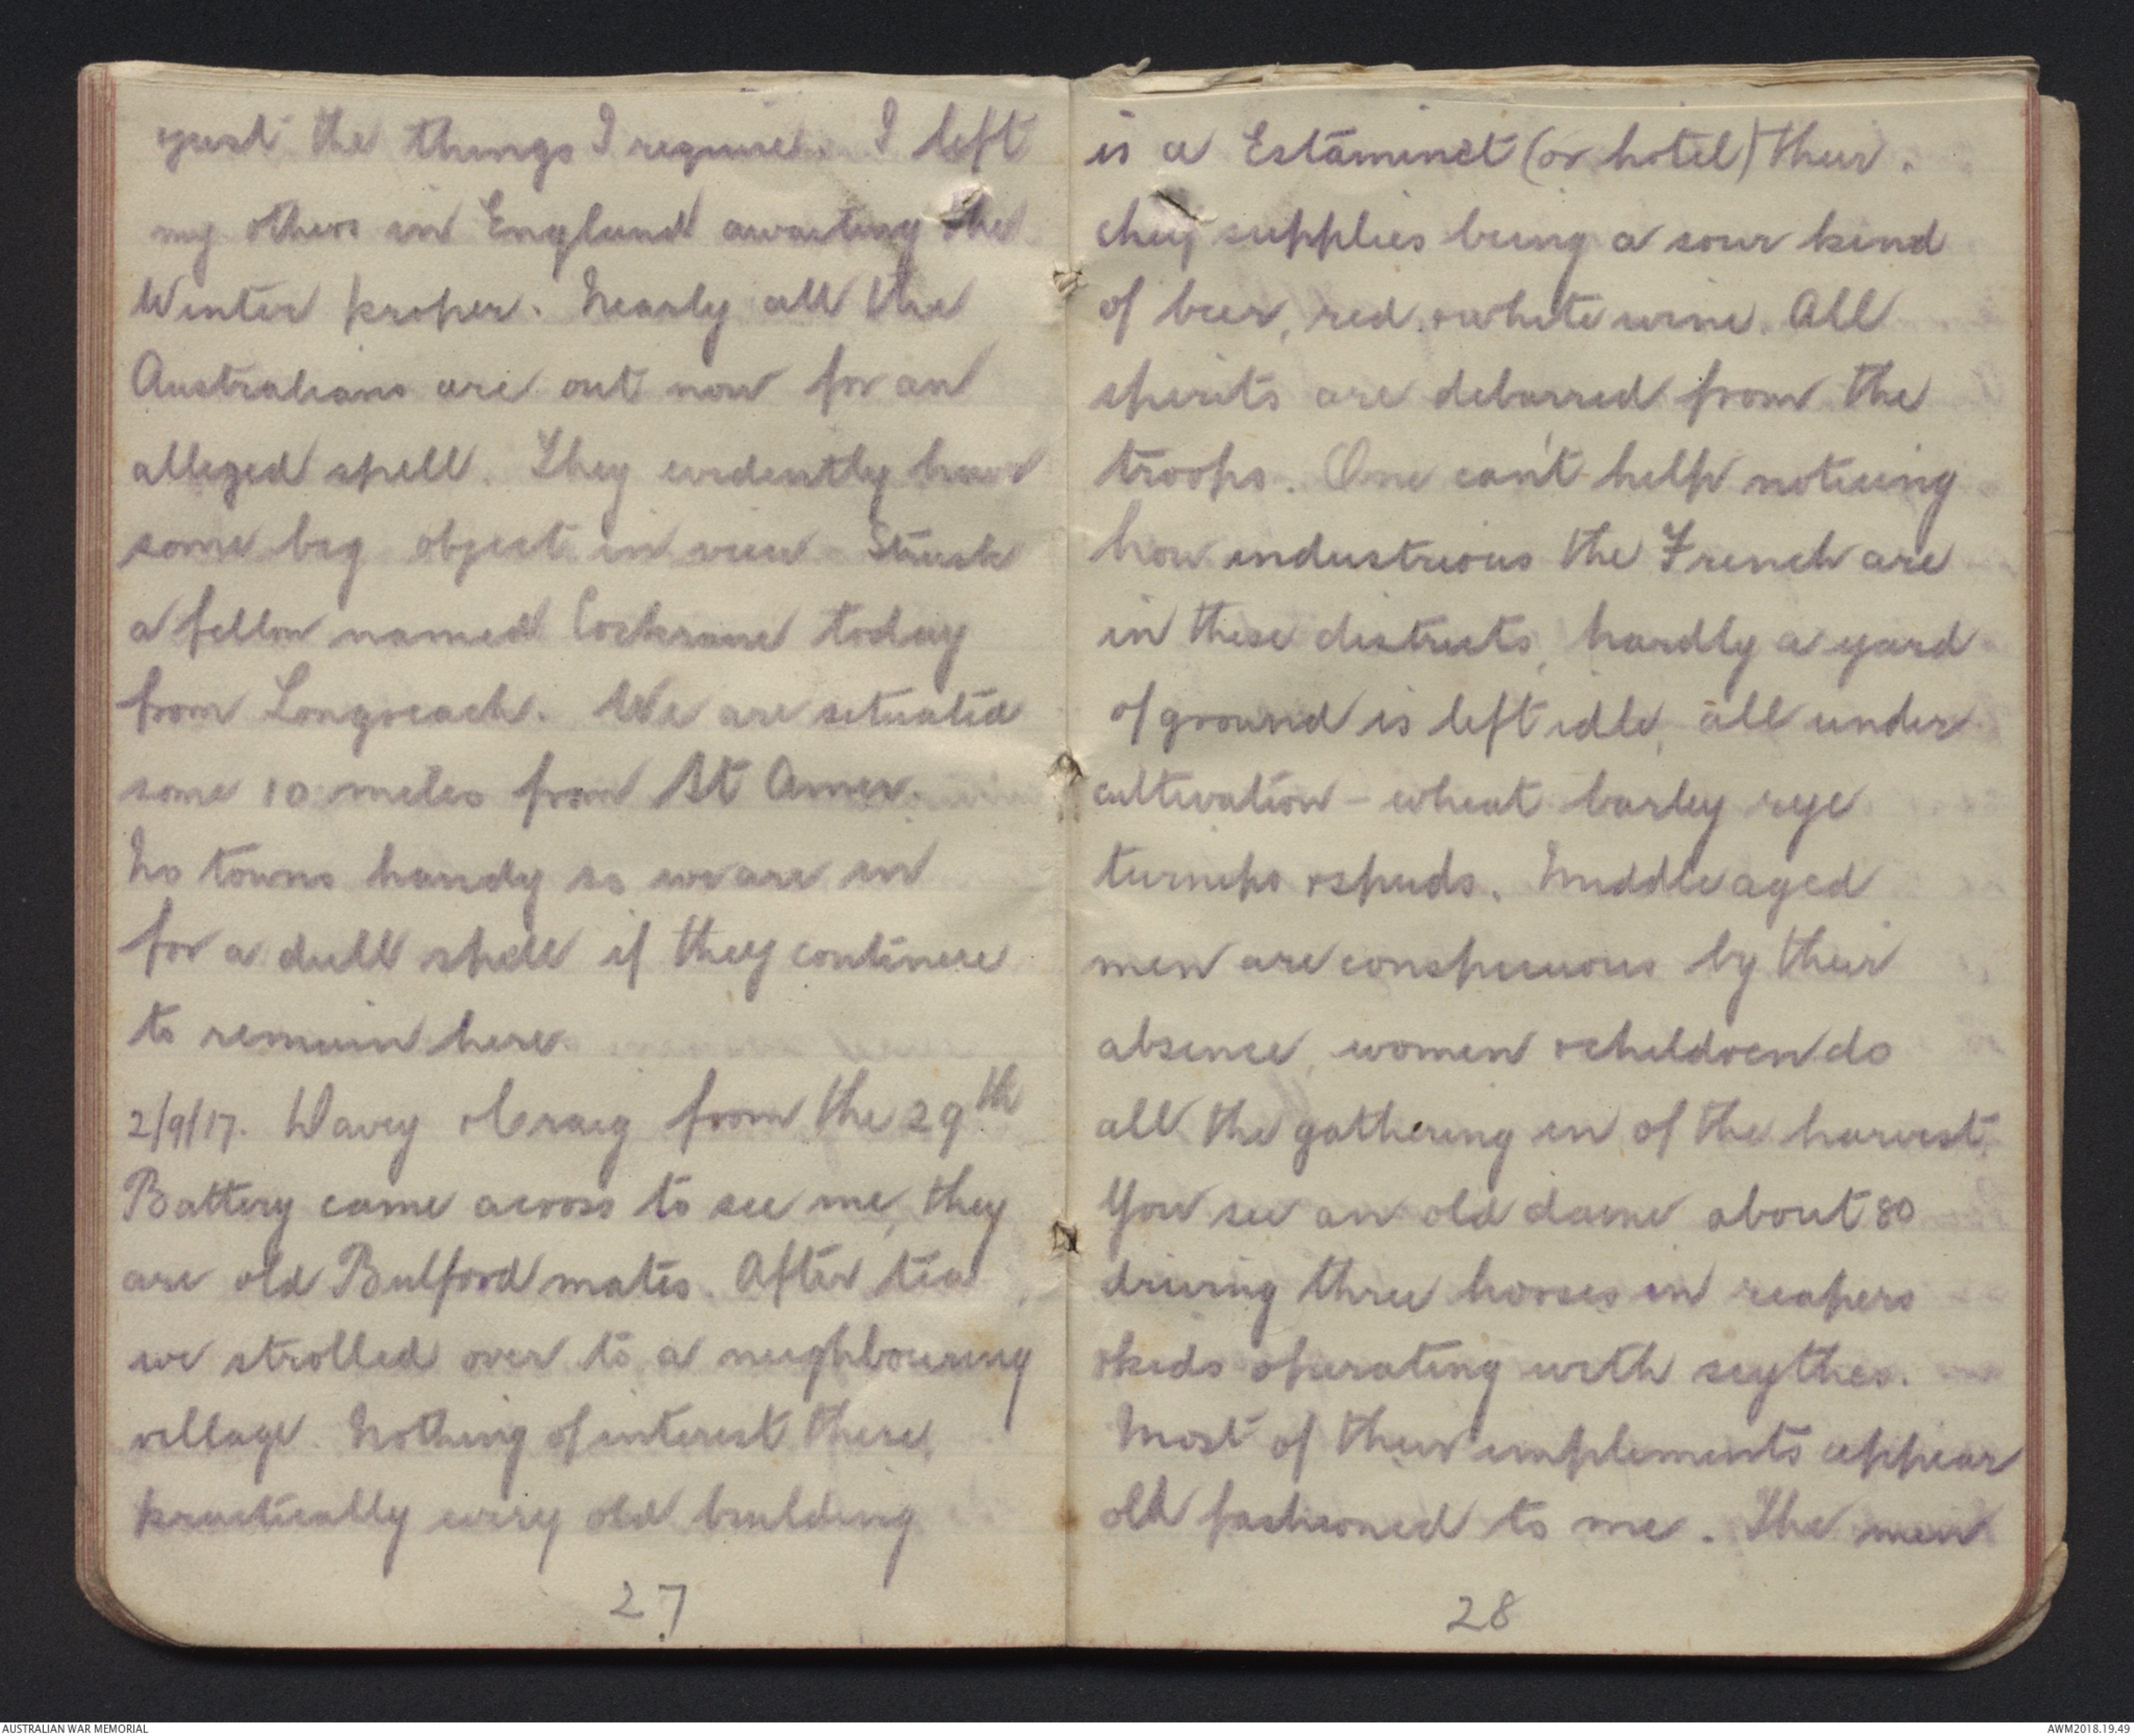 just the things I require. I left
my others in England awaiting the
Winter proper. Nearly all the
Australians are out now for an
alleged spell. They evidently have
some big object in view. Struck
a fellow named Cockrane today
from Longreach. We are situated
some 10 miles from St Omer.
No towns handy so we are in
for a dull spell if they continue
to remain here.
2/9/17. Davey & Craig from the 29th
Battery came across to see me, they
are old Bulford mates. After tea
we strolled over to a neighbouring
village. Nothing of interest there,
practically every old building
27
is a Estaminet (or hotel) their
chief supplies being a sour kind
of beer, red & white wine. All
spirits are debarred from the
troops. One can't help noticing
how industrious the French are
in these districts, hardly a yard
of ground is left idle, all under
cultivation - wheat barley rye
turnips & spuds. Middle aged
men are conspicuous by their
absence, women & children do
all the gathering in of the harvest.
You see an old dame about 80
driving three horses in reapers
& kids operating with scythes.
Most of their implements appear
old fashioned to me. The men
28
AUSTRALIAN WAR MEMORIAL
AWM2018.19.49